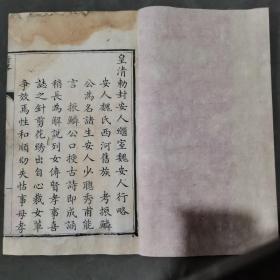 皇清勅封安人繼室魏安人行略
安人魏氏西河舊族 考振麟
公為名諸生安人少聰秀甫能
言 振麟公口授古詩即成誦
稍長為解說列女傳暨孝事喜
誌之針剪花繡出自心裁女輩
爭效焉性和順幼失怙事母孝